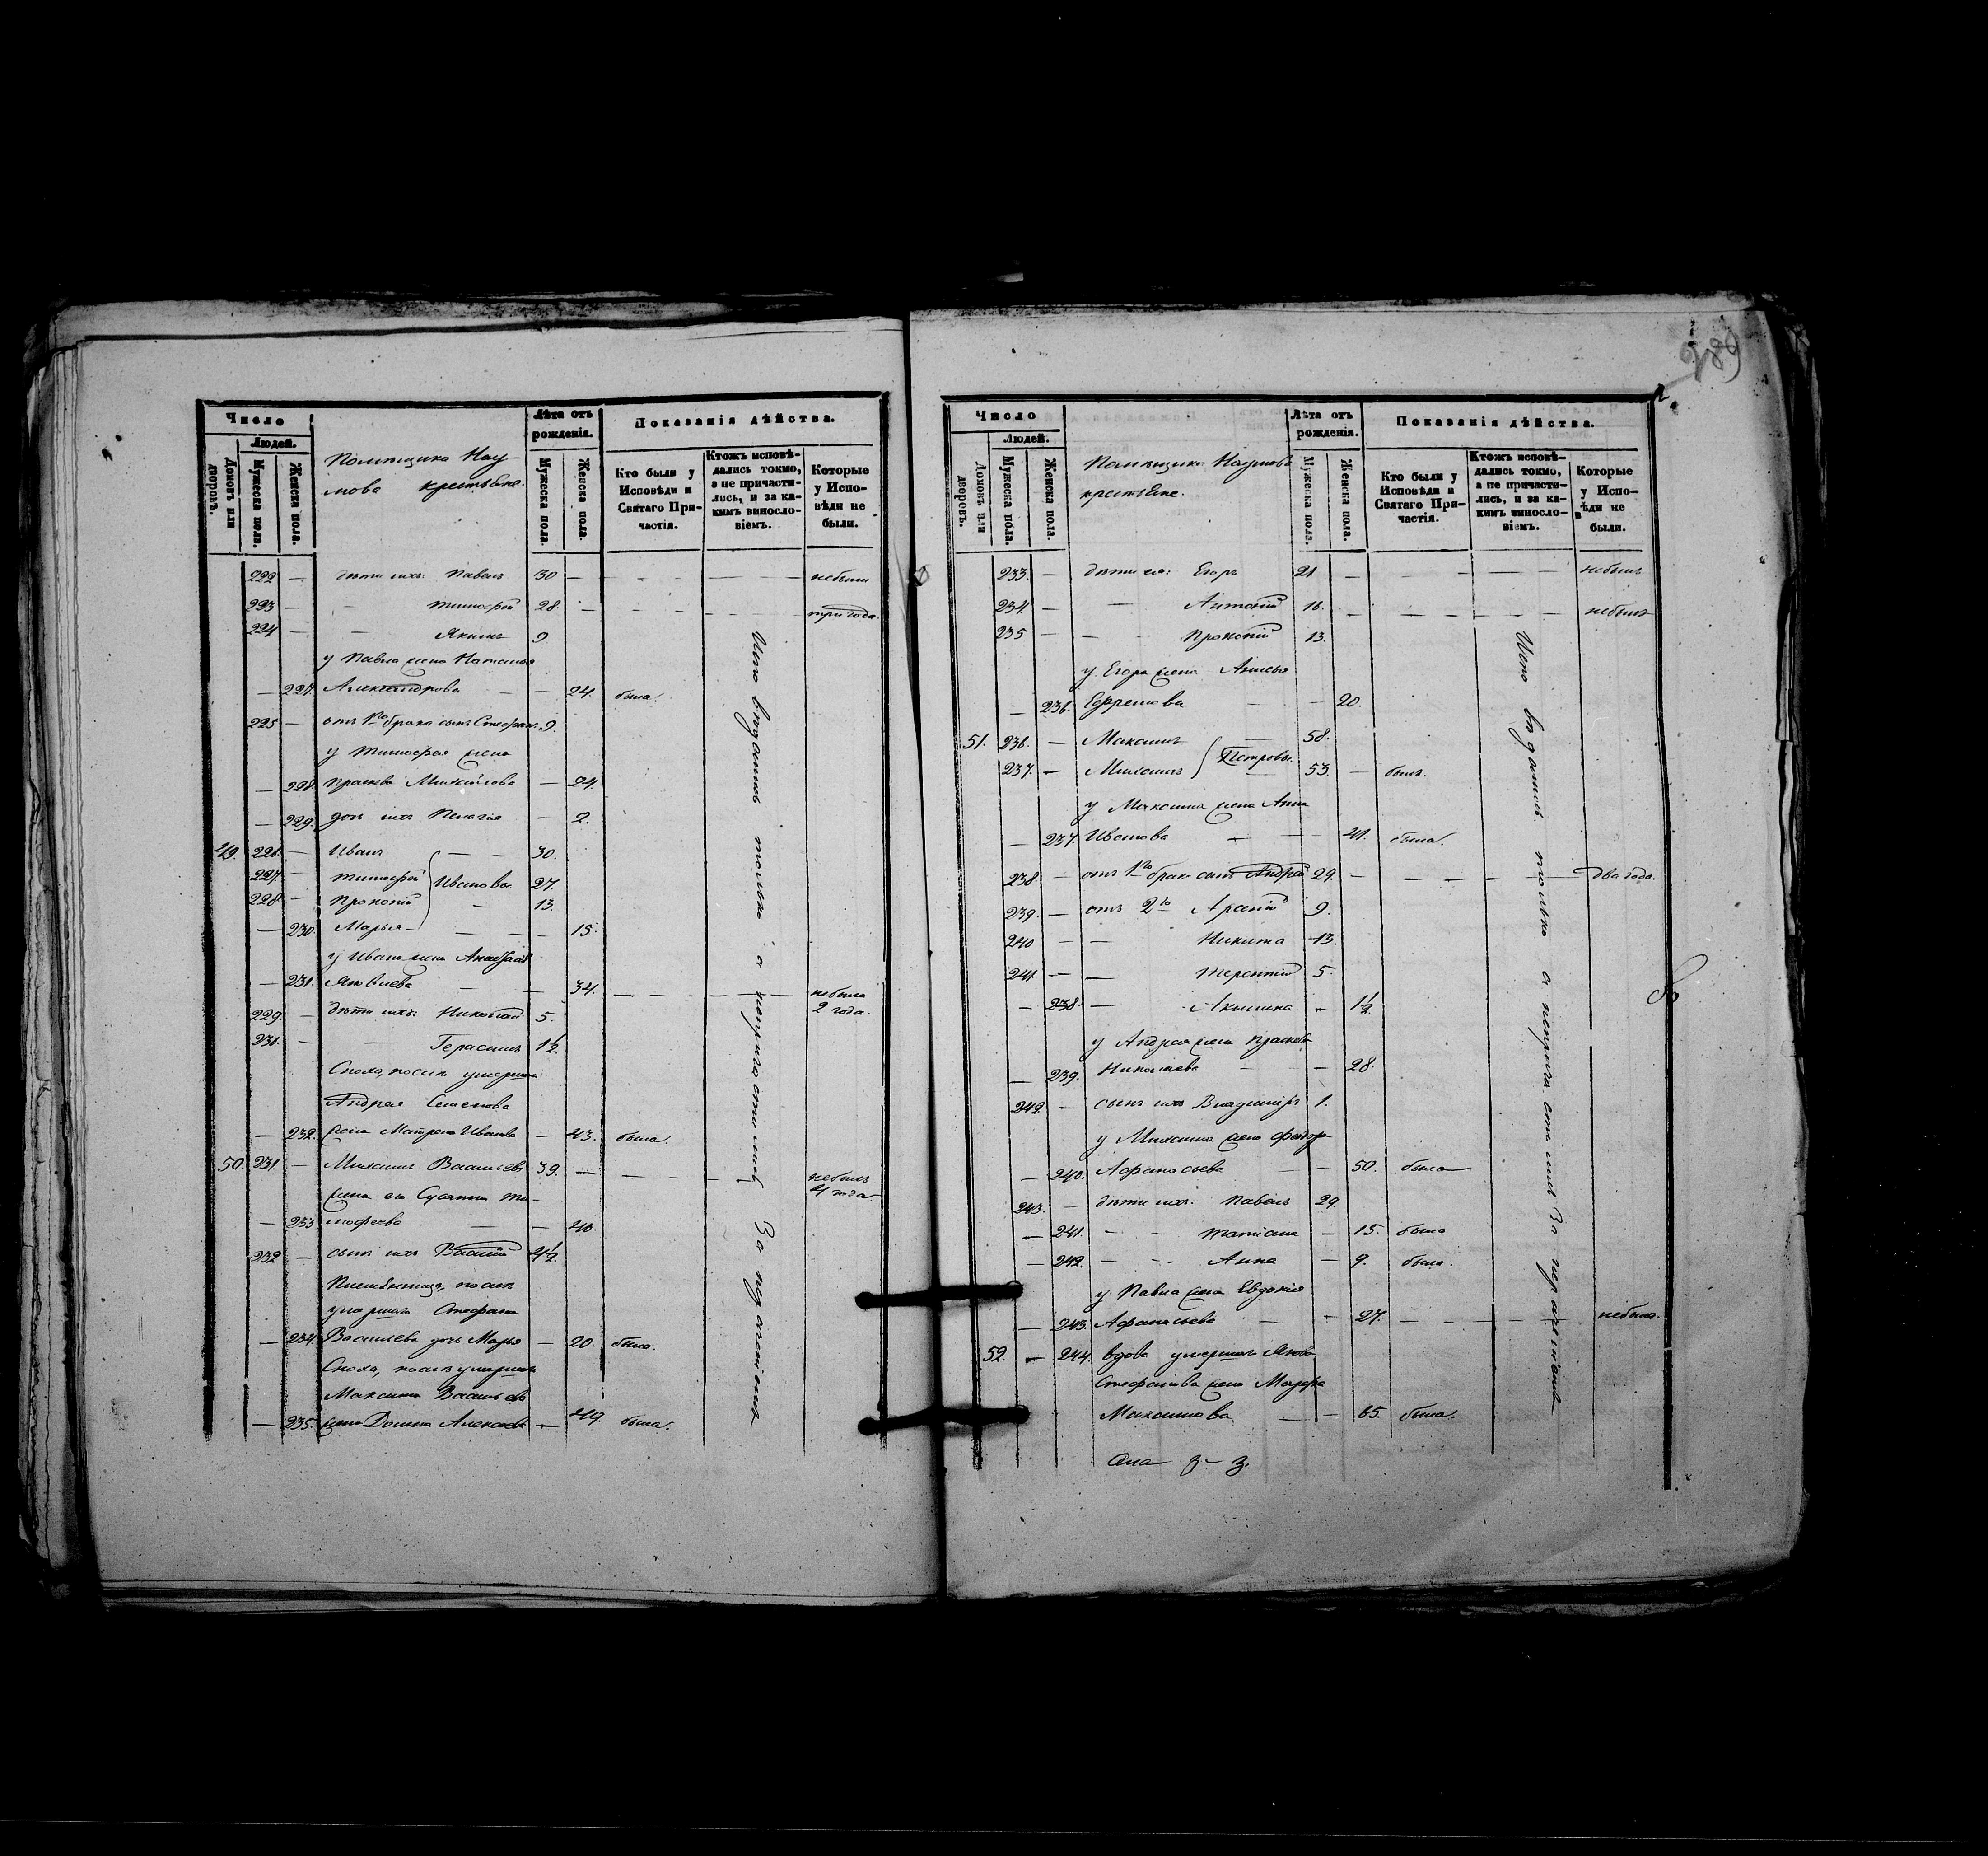 Число
Людей.
Домовъ или дворовъ.
Мужеска пола.
Женска пола.
Помѣщика Нау
мова крестьяне.
Лѣта отъ рожденія.
Мужеска пола.
Женска пола.
Показанія дѣйства.
Кто были у Исповѣди и Святаго Причастія.
Ктожъ исповѣ-
дались токмо,
а не причасти-
лись, и за ка-
кимъ винносло-
віемъ.
Которые
у Испо-
вѣди не
были.
222 — дѣти ихъ: Павелъ 30 — небыли
223 — Тимофей 28. — три года.
224 — Якимъ 9
у Павла жена Наталья
— 227 Александрова — 24. была.
225 — отъ 1го брака сынъ Стефанъ 9.
у Тимофея жена
— 228. Прасковья Михайлова — 24.
— 229. дочь ихъ Пелагія — 2.
49. 226. — Иванъ 30.
227. — Тимофей Ивановы 27.
228. — Прокопій 13.
— 230. Марья — 15.
у Ивана жена
— 231. Яковлева — 34. — небыла
2 года.
229. — дѣти ихъ: Николай 5.
231. — Герасимъ 1½
Сноха, послѣ умершаго
Андрея Семенова
— 232. жена Матрена Иванова — 43. была.
50. 231. — Михаилъ Васильевъ 39. — небылъ
4 года
жена его Сусанна Ти-
— 233 мофеева — 40.
232 — сынъ ихъ Василій 4½
Племянница, послѣ
умершаго Стефана
— 234. Васильева дочь Марья — 20. была.
Сноха, послѣ умершаго
Максима Васильева
— 235. жена Домна Алексѣева — 49. была.
Исповѣдались только а непричастились За нерачениемъ
289
Число
Людей.
Домовъ или дворовъ.
Мужеска пола.
Женска пола.
Помѣщика Наумова
крестьяне.
Лѣта отъ рожденія.
Мужеска пола.
Женска пола.
Показанія дѣйства.
Кто были у
Исповѣди и
Святаго При-
частія.
Ктожъ исповѣ-
дались токмо,
а не причасти-
лись, и за ка-
кимъ винносло-
віемъ.
Которые
у Испо-
вѣди не
были.
233. — дѣти его: Егоръ 21 — небылъ
234 — Антоній 16. — небылъ
235 — Прокопій 13.
у Егора жена
— 236. Ефремова — 20.
51. 236. — Максимъ 58.
237. — Михаилъ Петровы. 53. — былъ.
у Максима жена Анна
— 237. Иванова — 41. была.
238. — отъ 1го брака сынъ Андрей 29. — два года.
239. — отъ 2го 9.
240 — Никита 13.
241 — Терентій 5.
— 238. — Акилина — 1½
у Андрея жена Прасковья
— 239. Николаева — 28.
242. — сынъ ихъ Владимиръ 1.
у Михаила жена
— 240. Афанасьева — 50. была
243. — дѣти ихъ: Павелъ 29.
— 241. — Татіана — 15. была
— 242. — Анна — 9. была.
у Павла жена Евдокія
— 243. Афанасьева — 27. — небыла.
52. — 244. вдова умершаго Якова
Стефанова жена Марфа
Максимова — 65. была.
Исповѣдались только а непричастились За нерачениемъ